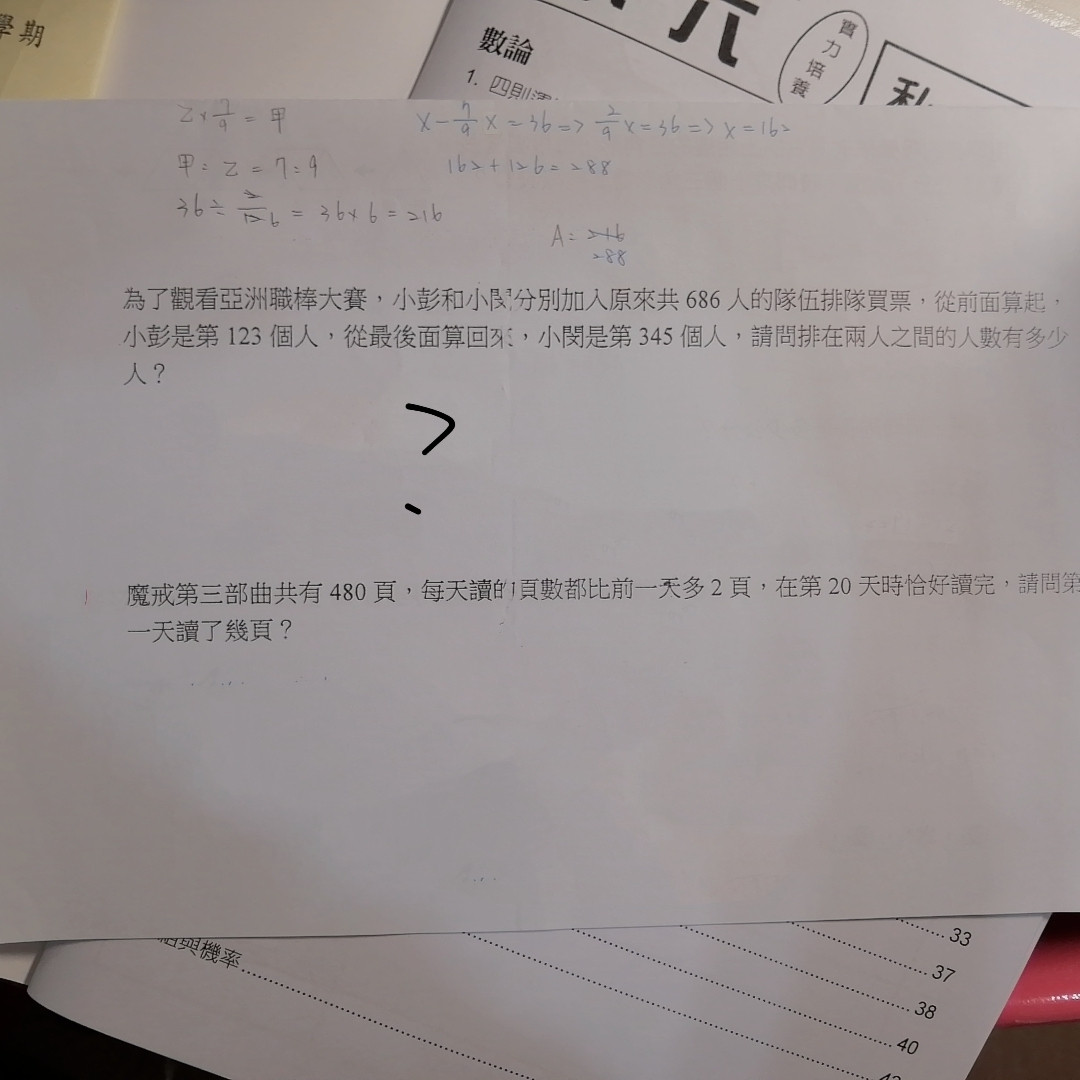 學期
數論
1. 四則運
實力培養
乙×7/9=甲
x-7/9x=36=>2/9x=36=>x=162
甲:乙=7:9
162+126=288
36÷ = 36×6=216
A=216
288
為了觀看亞洲職棒大賽，小彭和小閔分別加入原來共 686 人的隊伍排隊買票，從前面算起，
小彭是第 123 個人，從最後面算回來，小閔是第 345 個人，請問排在兩人之間的人數有多少
人？
?
魔戒第三部曲共有 480 頁，每天讀的頁數都比前一天多 2 頁，在第 20 天時恰好讀完，請問第
一天讀了幾頁？
與機率
33
37
38
40